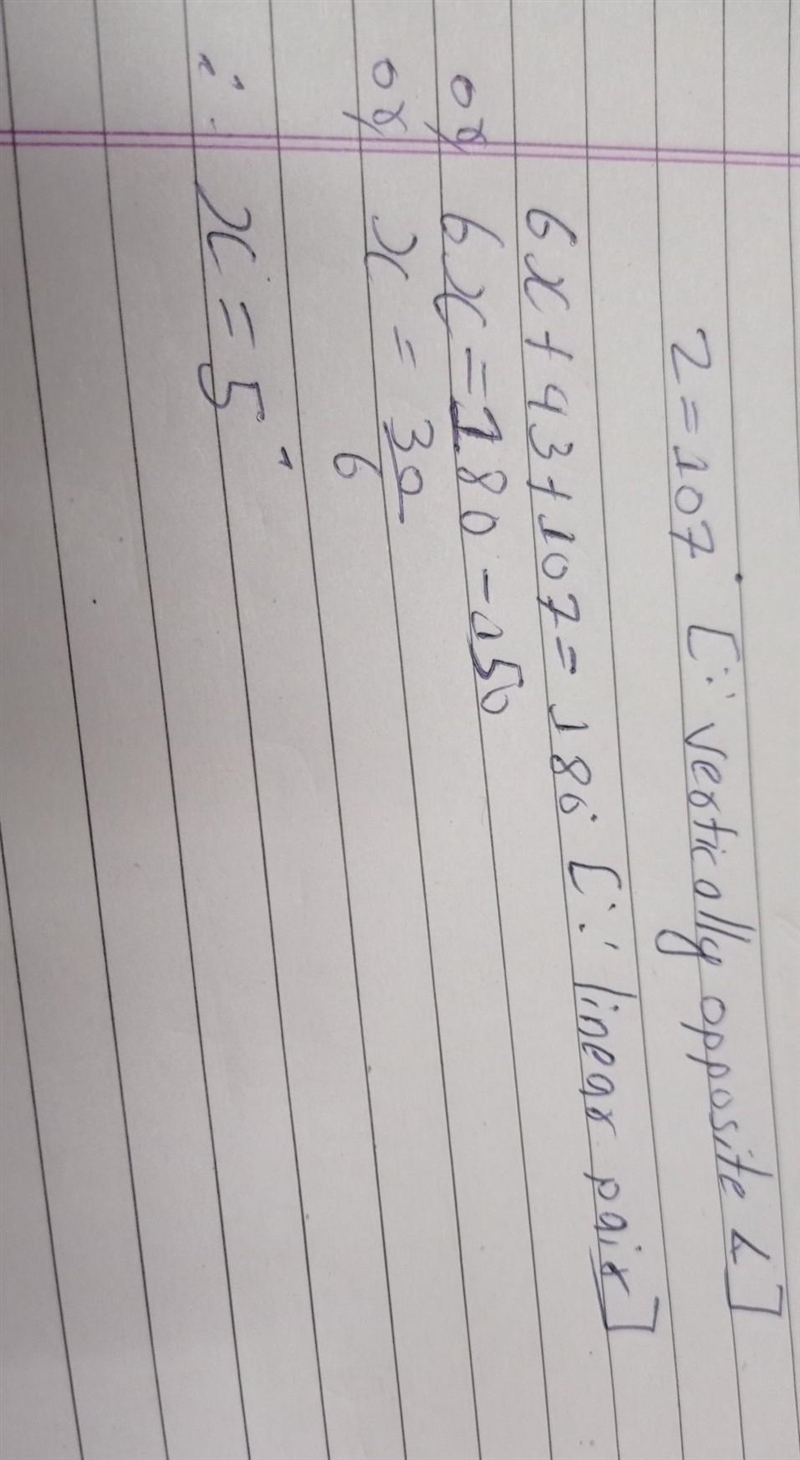 z = 107° [∵ vertically opposite ∠]
6x + 43 + 107 = 180 [∵ linear pair]
or, 6x = 180 - 150
or, x = 30/6
∴ x = 5°